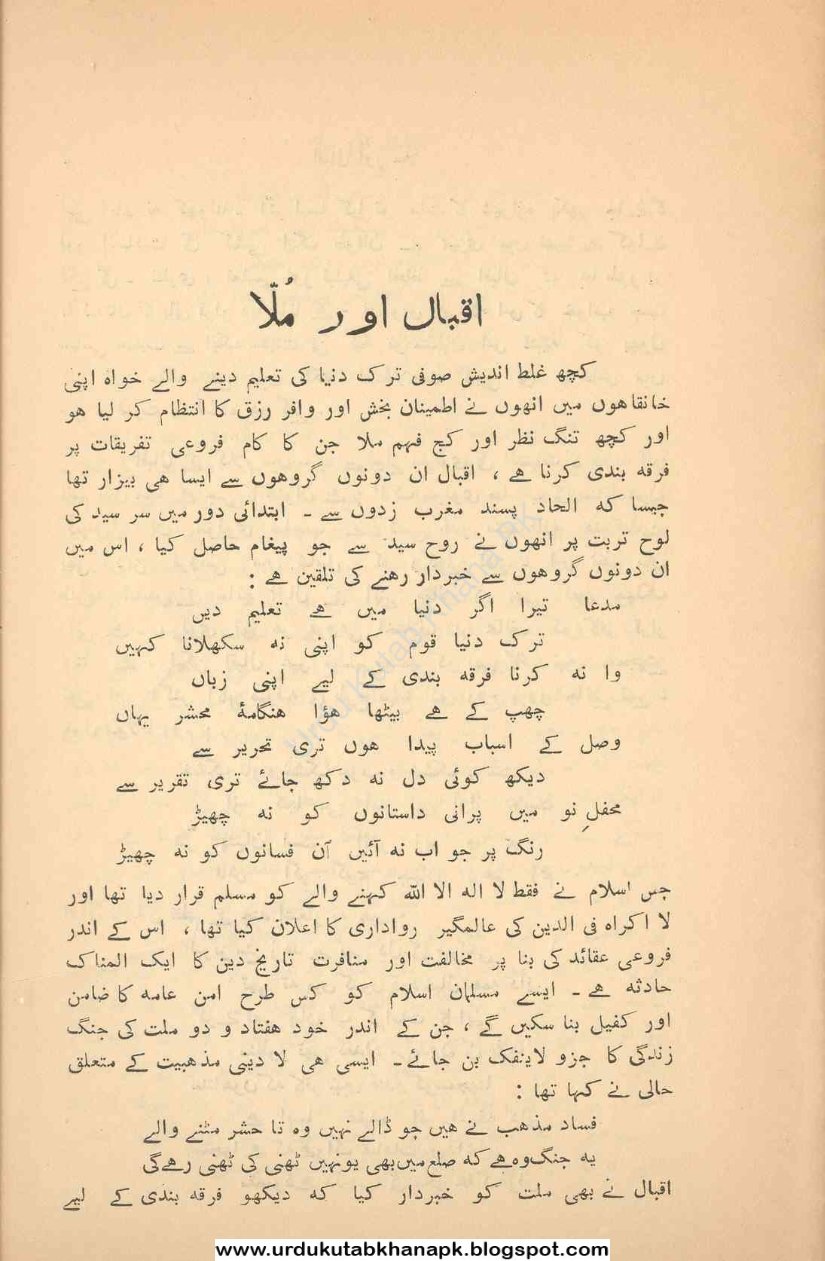 اقبال اور مُلّا
کچھ غلط اندیش صوفی ترک دنیا کی تعلیم دینے والے خواہ اپنی
خانقاہوں میں انھوں نے اطمینان بخش اور وافر رزق کا انتظام کر لیا ہو
اور کچھ تنگ نظر اور کج فہم ملا جن کا کام فروعی تفریقات پر
فرقہ بندی کرنا ہے ، اقبال ان دونوں گروہوں سے ایسا ہی بیزار تھا
جیسا کہ الحاد پسند مغرب زدوں سے ۔ ابتدائی دور میں سر سید کی
لوح تربت پر انھوں نے روح سید سے جو پیغام حاصل کیا ، اس میں
ان دونوں گروہوں سے خبردار رہنے کی تلقین ہے :
مدعا تیرا اگر دنیا میں ہے تعلیم دیں
ترک دنیا قوم کو اپنی نہ سکھلانا کہیں
وا نہ کرنا فرقہ بندی کے لیے اپنی زباں
چھپ کے ہے بیٹھا ہؤا ہنگامۂ محشر یہاں
وصل کے اسباب پیدا ہوں تری تحریر سے
دیکھ کوئی دل نہ دکھ جائے تری تقریر سے
محفلِ نو میں پرانی داستانوں کو نہ چھیڑ
رنگ پر جو اب نہ آئیں اُن فسانوں کو نہ چھیڑ
جس اسلام نے فقط لا الہ الا اللہ کہنے والے کو مسلم قرار دیا تھا اور
لا اکراہ فی الدین کی عالمگیر رواداری کا اعلان کیا تھا ، اس کے اندر
فروعی عقائد کی بنا پر مخالفت اور منافرت تاریخ دین کا ایک المناک
حادثہ ہے ۔ ایسے مسلمان اسلام کو کس طرح امن عامہ کا ضامن
اور کفیل بنا سکیں گے ، جن کے اندر خود ہفتاد و دو ملت کی جنگ
زندگی کا جزو لاینفک بن جائے ۔ ایسی ہی لا دینی مذہبیت کے متعلق
حالی نے کہا تھا :
فساد مذہب نے ہیں جو ڈالے نہیں وہ تا حشر مٹنے والے
یہ جنگ وہ ہے کہ صلح میں بھی یونہیں ٹھنی کی ٹھنی رہے گی
اقبال نے بھی ملت کو خبردار کیا کہ دیکھو فرقہ بندی کے لیے
www.urdukutabkhanapk.blogspot.com